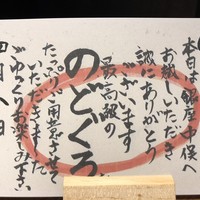 本日は銀座中俣へ
お越しいただき
誠にありがとう
ございます
最高級の
のどぐろ
たっぷりご用意させて
いただきました
ごゆっくりお楽しみ下さい
四月八日